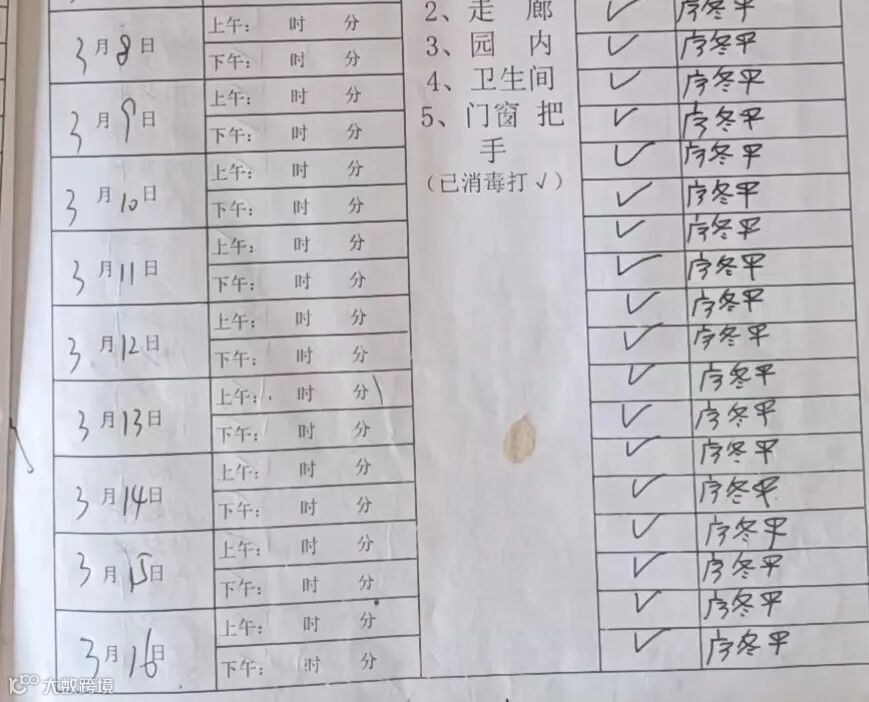 上午: 时 分 2、走 廊 ✓ 字冬平
3月8日
下午: 时 分 3、园 内 ✓ 字冬平
上午: 时 分 4、卫生间 ✓ 字冬平
3月9日
下午: 时 分 5、门窗 把 ✓ 字冬平
上午: 时 分 手 ✓ 字冬平
3月10日
下午: 时 分 (已消毒打√) ✓ 字冬平
上午: 时 分 ✓ 字冬平
3月11日
下午: 时 分 ✓ 字冬平
上午: 时 分 ✓ 字冬平
3月12日
下午: 时 分 ✓ 字冬平
上午: 时 分 ✓ 字冬平
3月13日
下午: 时 分 ✓ 字冬平
上午: 时 分 ✓ 字冬平
3月14日
下午: 时 分 ✓ 字冬平
上午: 时 分 ✓ 字冬平
3月15日
下午: 时 分 ✓ 字冬平
上午: 时 分 ✓ 字冬平
3月16日
下午: 时 分 ✓ 字冬平
大数跨境